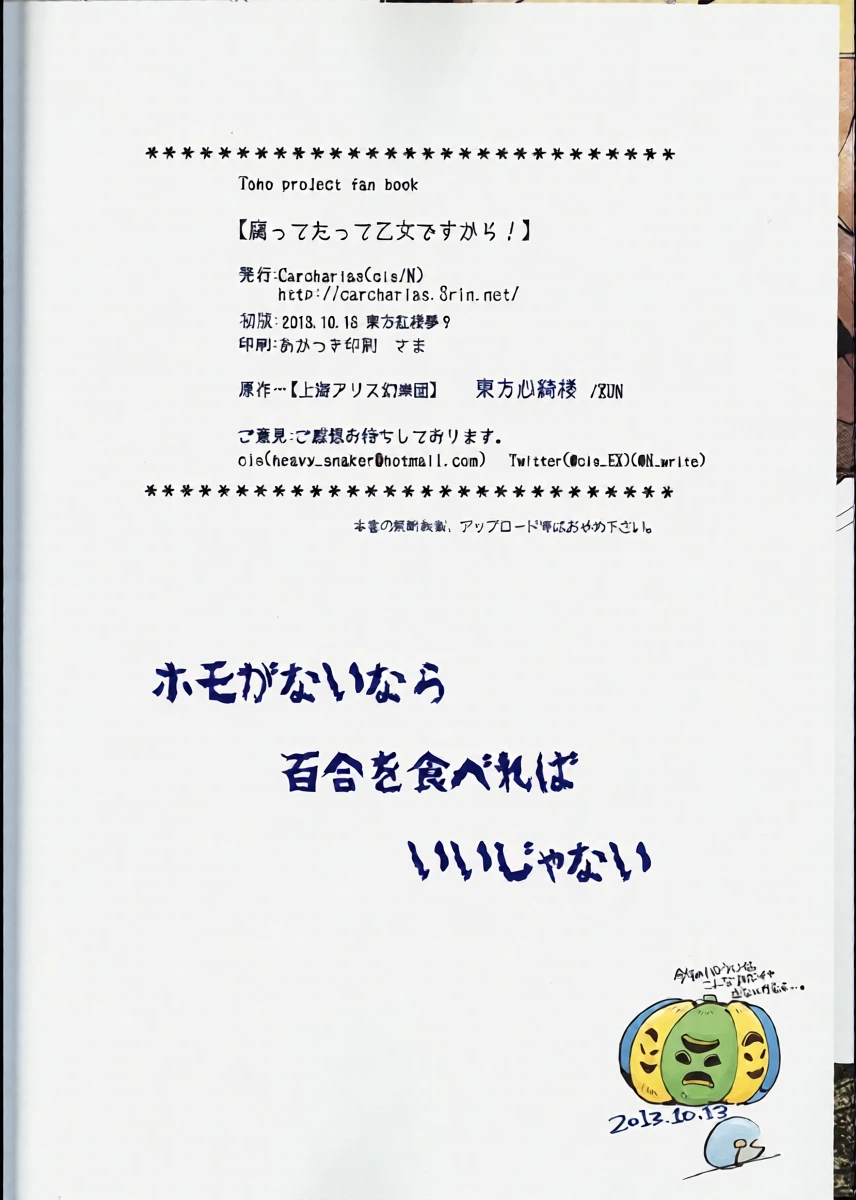 ******************************
Toho project fan book
【腐ってたって乙女ですから！】
発行:Carcharias(cis/N)
http://carcharias.8rin.net/
初版:2013.10.13 東方紅楼夢9
印刷:あかつき印刷 さま
原作…【上海アリス幻樂団】 東方心綺楼 /ZUN
ご意見:ご感想お待ちしております。
cis(heavy_snaker@hotmail.com) Twitter(@cis_EX)(@N_write)
******************************
本書の無断転載、アップロード等はおやめ下さい。
ホモがないなら
百合を食べれば
いいじゃない
今年のハロウィンは
こんなカボチャ
2013.10.13
cis